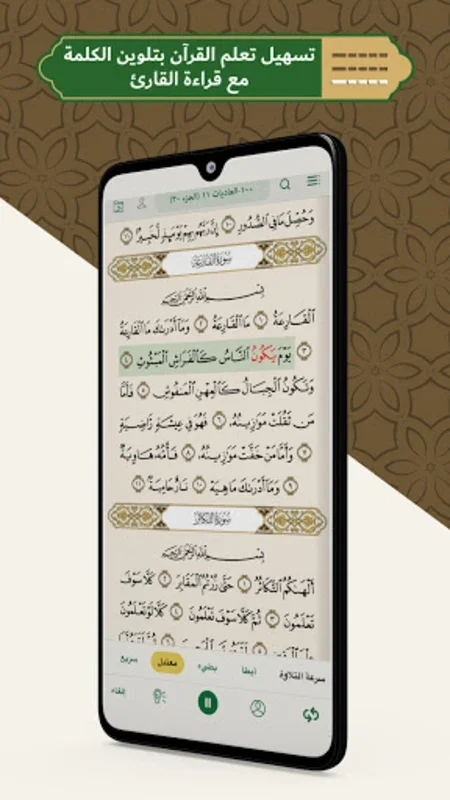 تسهيل تعلم القرآن بتلوين الكلمة
مع قراءة القارئ
١٠٠-العاديات ١١ (الجزء ٣٠)
وَحُصِّلَ مَا فِي ٱلصُّدُورِ ١٠ إِنَّ رَبَّهُم بِهِمْ يَوْمَئِذٍ لَّخَبِيرٌۢ ١١
سُورَةُ القَارِعَةِ
بِسْمِ ٱللَّهِ ٱلرَّحْمَٰنِ ٱلرَّحِيمِ
ٱلْقَارِعَةُ ١ مَا ٱلْقَارِعَةُ ٢ وَمَآ أَدْرَىٰكَ مَا ٱلْقَارِعَةُ
٣ يَوْمَ يَكُونُ ٱلنَّاسُ كَٱلْفَرَاشِ ٱلْمَبْثُوثِ ٤
وَتَكُونُ ٱلْجِبَالُ كَٱلْعِهْنِ ٱلْمَنفُوشِ ٥ فَأَمَّا
مَن ثَقُلَتْ مَوَٰزِينُهُۥ ٦ فَهُوَ فِي عِيشَةٍ رَّاضِيَةٍ
٧ وَأَمَّا مَنْ خَفَّتْ مَوَٰزِينُهُۥ ٨ فَأُمُّهُۥ هَاوِيَةٌ
٩ وَمَآ أَدْرَىٰكَ مَا هِيَهْ ١٠ نَارٌ حَامِيَةٌۢ ١١
سُورَةُ التَّكَاثُرِ
بِسْمِ ٱللَّهِ ٱلرَّحْمَٰنِ ٱلرَّحِيمِ
أَلْهَىٰكُمُ ٱلتَّكَاثُرُ ١ حَتَّىٰ زُرْتُمُ ٱلْمَقَابِرَ ٢ كَلَّا سَوْفَ
تَعْلَمُونَ ٣ ثُمَّ كَلَّا سَوْفَ تَعْلَمُونَ ٤ كَلَّا لَوْ تَعْلَمُونَ
سرعة التلاوة ابطأ بطيء معتدل سريع
إخفاء